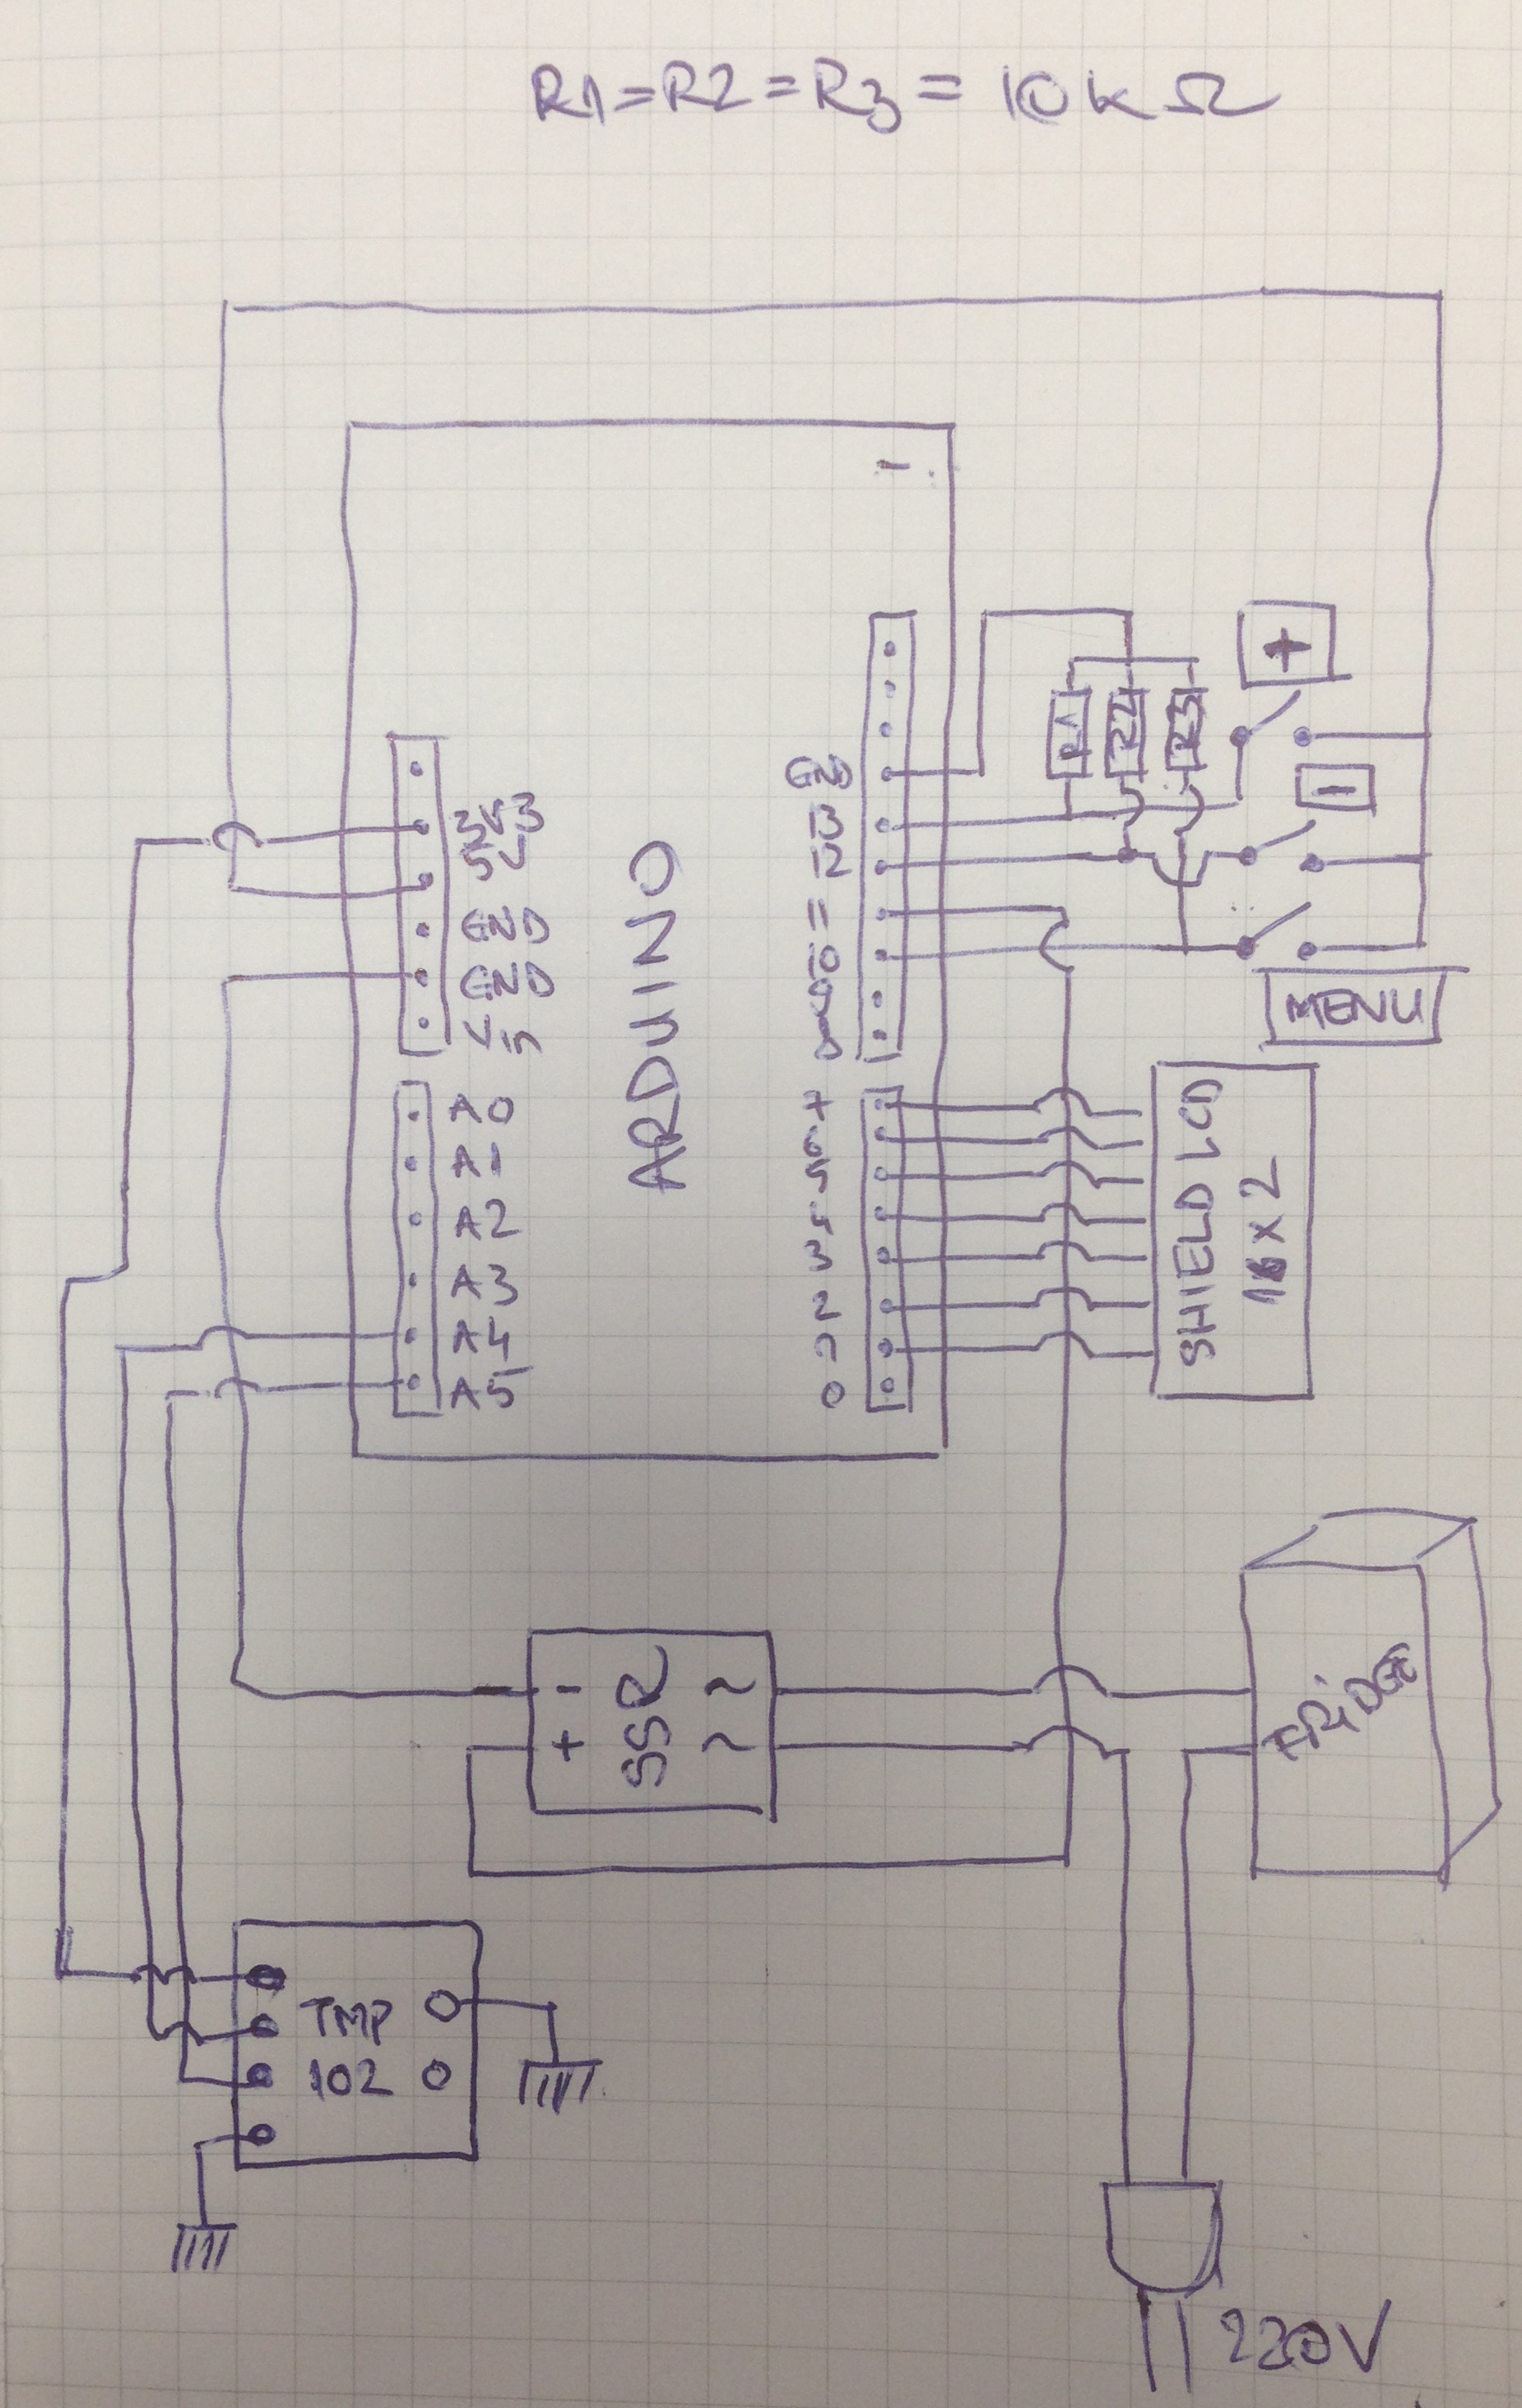 R1=R2=R3=10kΩ
+
R1
R2
R3
-
3V3
5V
GND
GND
Vin
A0
A1
A2
A3
A4
A5
ARDUINO
13
12
11
10
9
8
7
6
5
4
3
2
1
0
MENU
SHIELD LCD
16x2
- ~
+ ~
SSR
FRiDGE
TMP
102
220V